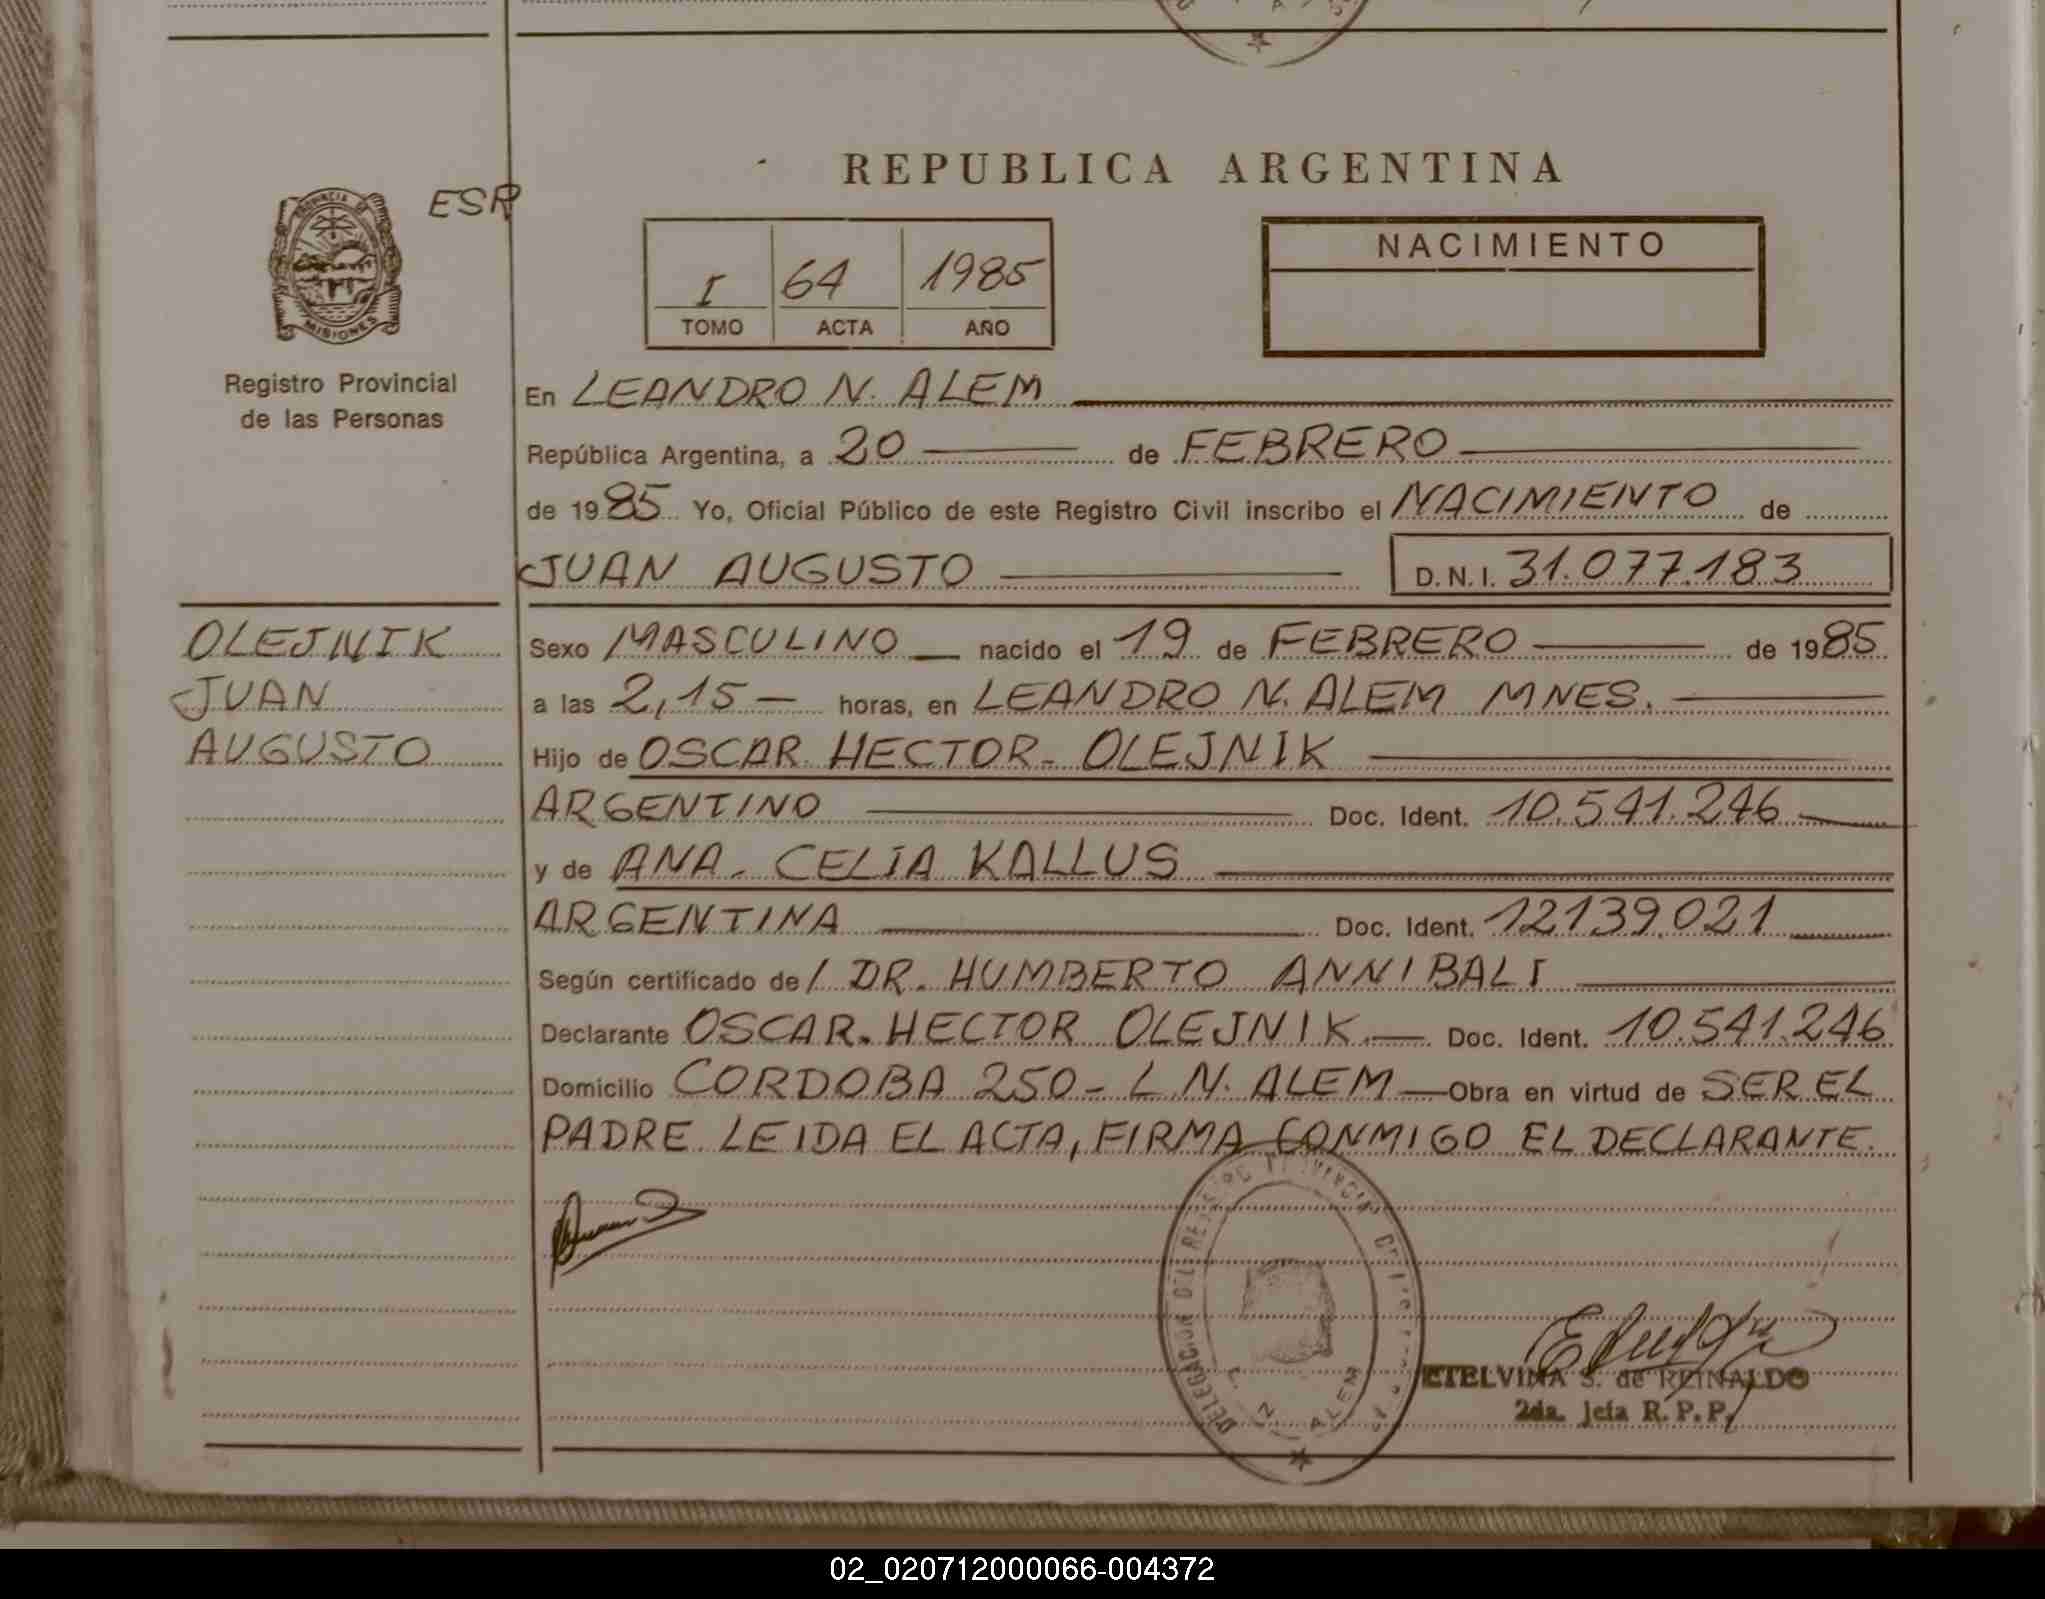 REPUBLICA ARGENTINA
ESR
PROVINCIA DE
MISIONES
I 64 1985
TOMO ACTA AÑO
NACIMIENTO
Registro Provincial
de las Personas
En LEANDRO N. ALEM
República Argentina, a 20 de FEBRERO
de 1985 Yo, Oficial Público de este Registro Civil inscribo el NACIMIENTO de
JUAN AUGUSTO D.N.I. 31.077.183
OLEJNIK
JUAN
AUGUSTO
Sexo MASCULINO nacido el 19 de FEBRERO de 1985
a las 2,15 — horas, en LEANDRO N. ALEM MNES.
Hijo de OSCAR HECTOR - OLEJNIK
ARGENTINO Doc. Ident. 10.541.246
y de ANA - CELIA KALLUS
ARGENTINA Doc. Ident. 12139.021
Según certificado de / DR. HUMBERTO ANNIBALI
Declarante OSCAR. HECTOR OLEJNIK.— Doc. Ident. 10.541.246
Domicilio CORDOBA 250 - L.N. ALEM — Obra en virtud de SER EL
PADRE LEIDA EL ACTA, FIRMA CONMIGO EL DECLARANTE.
DELEGACION DEL REGISTRO PROVINCIAL
L. N. ALEM
ETELVINA S. de REINALDO
2da. Jefa R.P.P.
02_020712000066-004372